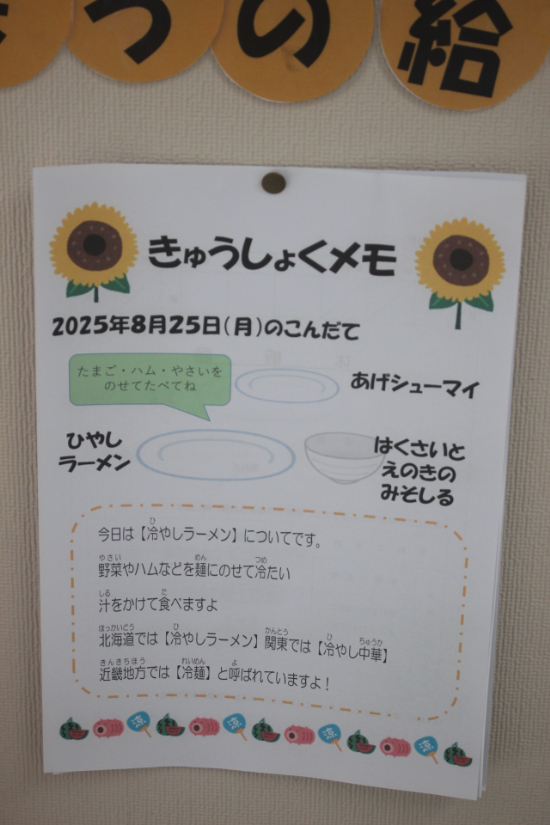 うの給
きゅうしょくメモ
2025年8月25日(月)のこんだて
たまご・ハム・やさいを
のせてたべてね
あげシューマイ
ひやし
ラーメン
はくさいと
えのきの
みそしる
今日は【冷やしラーメン】についてです。
野菜やハムなどを麺にのせて冷たい
汁をかけて食べますよ
北海道では【冷やしラーメン】関東では【冷やし中華】
近畿地方では【冷麺】と呼ばれていますよ!
涼 涼 涼 涼